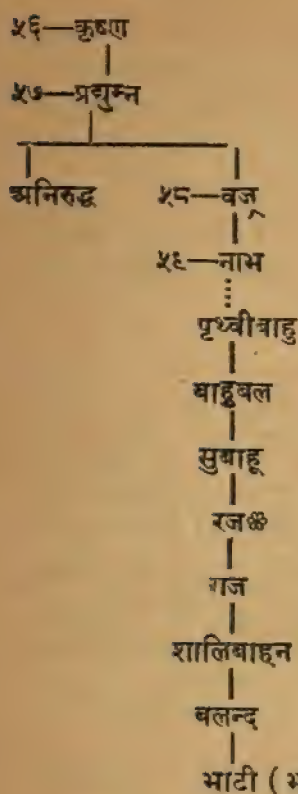 ५६—कृष्ण
५७—प्रद्युम्न
अनिरुद्ध ५८—वज्र
५९—नाभ
पृथ्वीबाहु
बाहुबल
सुबाहू
रज❀
गज
शालिबाहन
बलन्द
भाटी (